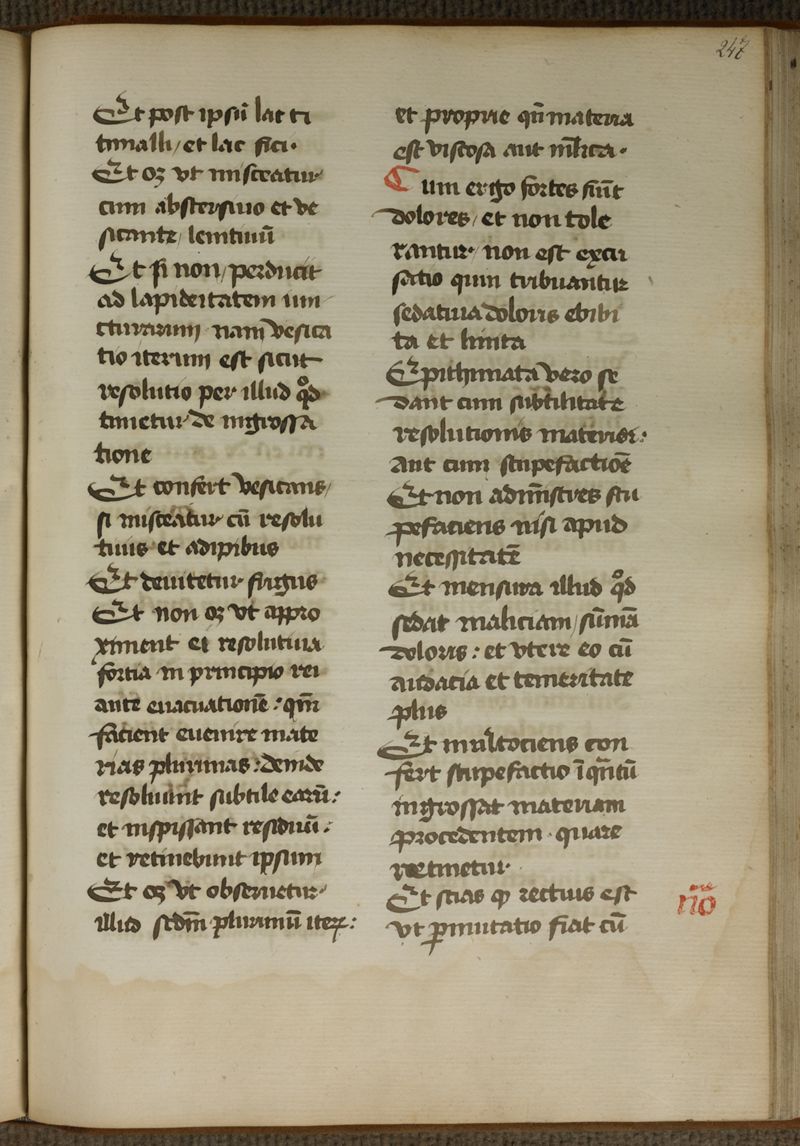 247
Et post ipsū lac ti
timalli/ et lac fici.
Et oꝫ vt misceatur
cum abstersiuo et de
siccante/ lenitiuū
Et si non/ perducit
ad lapideitatem iun
cturarum nam vesica
tio iterum est sicut
resolutio per illud qᷣd
timetur de ingrossa
tione
Et confert vesicans/
si misceatur cū resolu
tiuis et adipibus
Et deuitetur frigus
Et non oꝫ vt appro
ximent ei resolutiua
fortia in principio rei
ante euacuationē: qm̄
facient euenire mate
rias plurimas: deinde
resoluunt subtile earū:
et inspissant residuū:
et retinebunt ipsum
Et oꝫ vt obseruetur
illud scdm̄ plurimū iteꝝ:
et proprie qn̄ materia
est viscosa aut mlīca.
Cum ergo fortes sunt
dolores/ et non tole
rantur non est excu
satio quin tribuantur
sedatiua doloris ebibi
ta et linita
Epithimata vero se
dant cum subtilitate
resolutionis materiei:
Aut cum stupefactiōe
Et non admīstres stu
pefaciens nisi apud
necessitatē
Et mensura illud qᷣd
sedat maliciam/ sūmā
doloris: et vtere eo cū
audacia et temeritate
plus
Et multociens con
fert stupefactio ī qn̄tū
ingrossat materiam
procedentem quare
retinetur
Et scias ꝙ rectius est
vt ꝑmutatio fiat cū